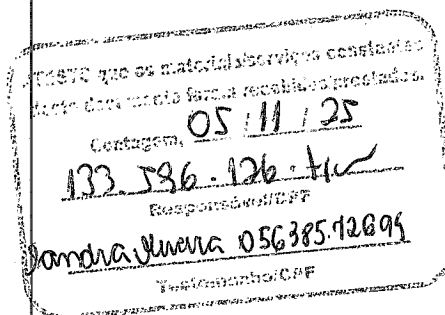 ATESTO que os materiais/serviços constantes
deste documento foram recebidos/prestados.
Contagem, 05 / 11 / 25
133.596.126.
Responsável/CPF
Sandra 056385.12699
Testemunha/CPF